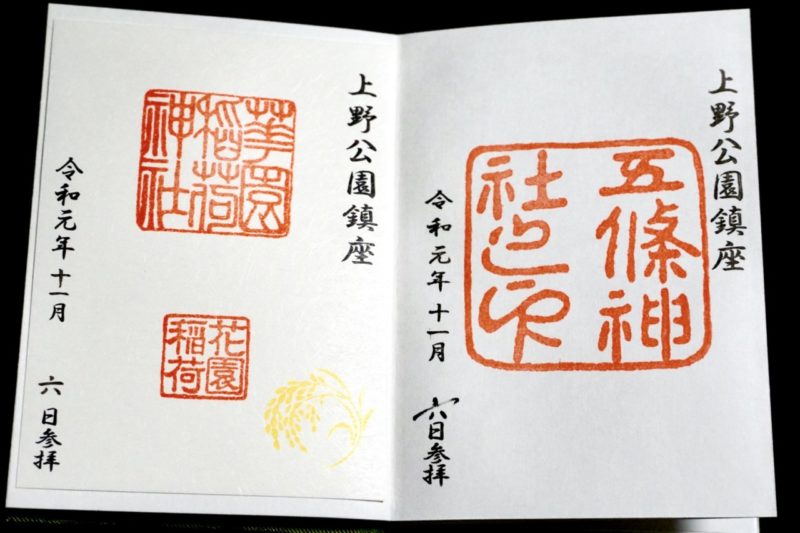 上野公園鎮座
五條神
社之印
令和元年十一月
六日参拝
上野公園鎮座
華園
稲荷
神社
花園
稲荷
令和元年十一月
六日参拝